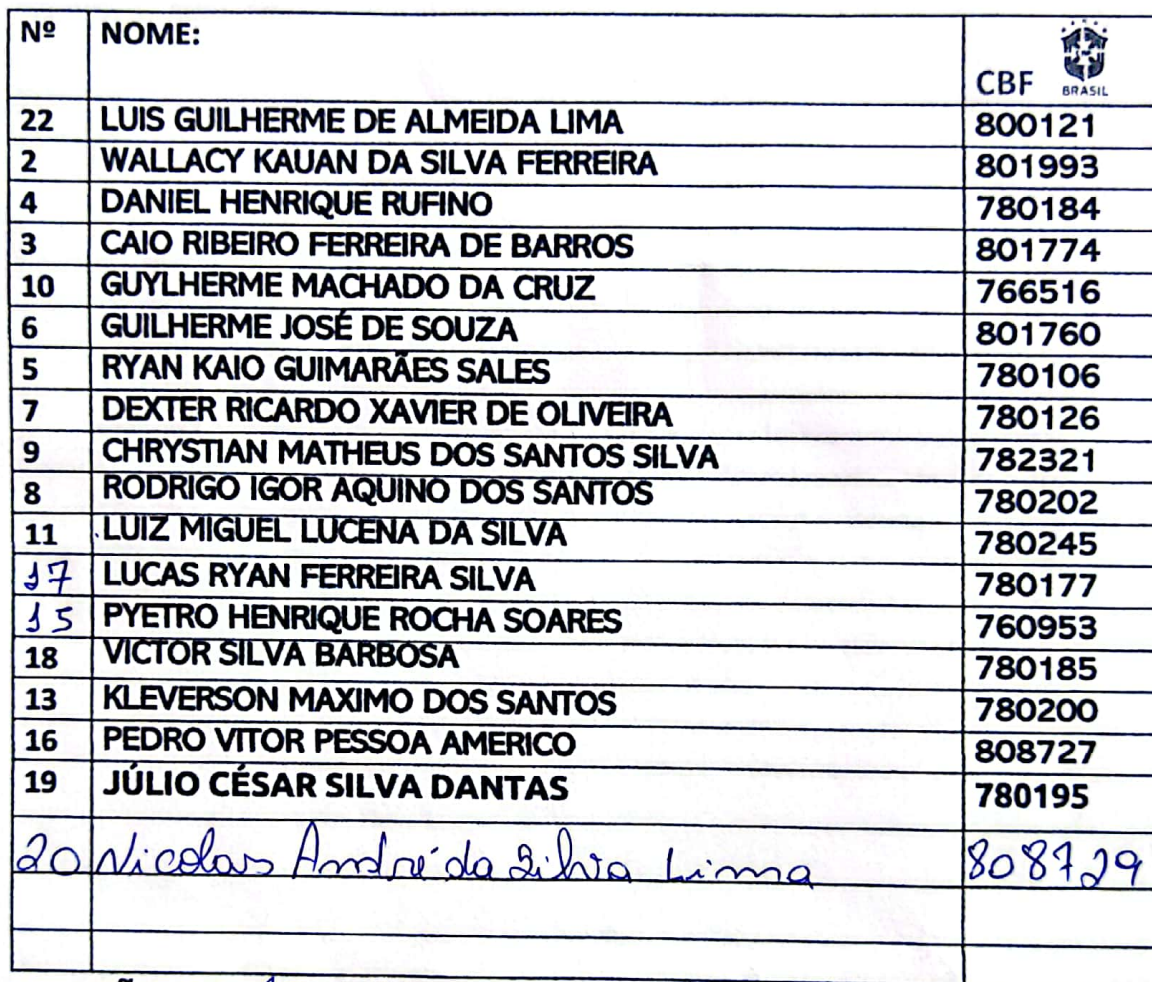 Nº NOME: CBF BRASIL
22 LUIS GUILHERME DE ALMEIDA LIMA 800121
2 WALLACY KAUAN DA SILVA FERREIRA 801993
4 DANIEL HENRIQUE RUFINO 780184
3 CAIO RIBEIRO FERREIRA DE BARROS 801774
10 GUYLHERME MACHADO DA CRUZ 766516
6 GUILHERME JOSÉ DE SOUZA 801760
5 RYAN KAIO GUIMARÃES SALES 780106
7 DEXTER RICARDO XAVIER DE OLIVEIRA 780126
9 CHRYSTIAN MATHEUS DOS SANTOS SILVA 782321
8 RODRIGO IGOR AQUINO DOS SANTOS 780202
11 LUIZ MIGUEL LUCENA DA SILVA 780245
17 LUCAS RYAN FERREIRA SILVA 780177
15 PYETRO HENRIQUE ROCHA SOARES 760953
18 VICTOR SILVA BARBOSA 780185
13 KLEVERSON MAXIMO DOS SANTOS 780200
16 PEDRO VITOR PESSOA AMERICO 808727
19 JÚLIO CÉSAR SILVA DANTAS 780195
20 Nicolas André da Silva Lima 808729